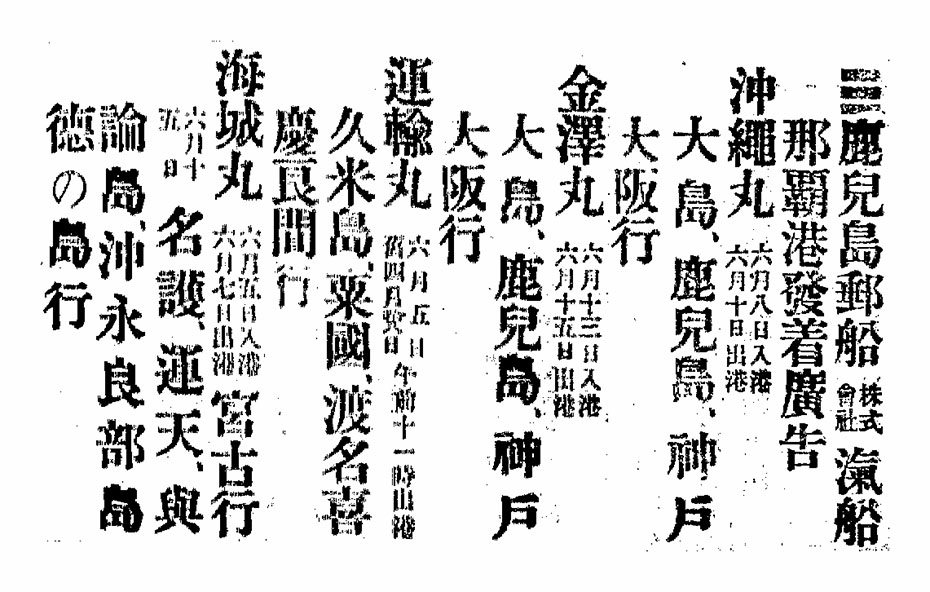 鹿兒島郵船株式會社滊船
那覇港發着廣告
沖繩丸 六月八日入港 六月十日出港
大島、鹿兒島、神戸
大阪行
金澤丸 六月十三日入港 六月十五日出港
大島、鹿兒島、神戸
大阪行
運輸丸 六月五日 舊四月 日 午前十一時出港
久米島、粟國、渡名喜
慶良間行
海城丸 六月五日入港 六月七日出港 宮古行
六月十五日 名護、運天、與
論島、沖永良部島
德の島行